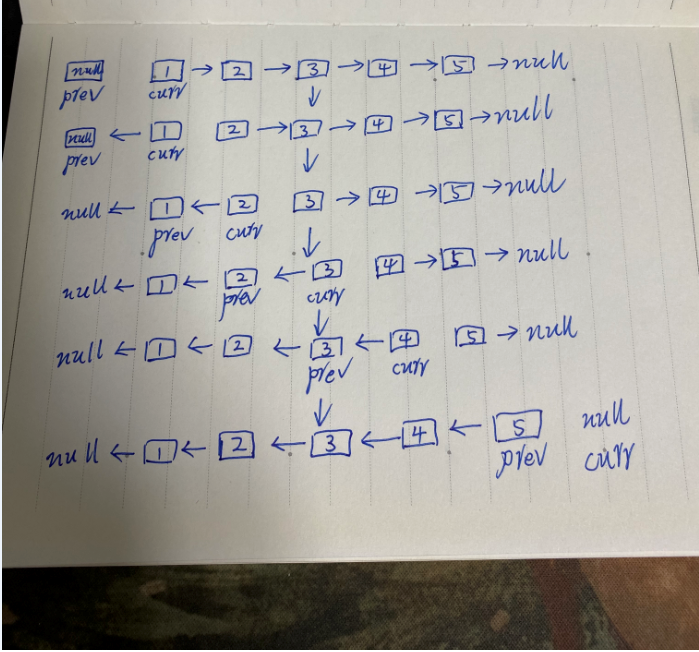 null 1 → 2 → 3 → 4 → 5 → null
prev curr
↓
null ← 1 2 → 3 → 4 → 5 → null
prev curr
↓
null ← 1 ← 2 3 → 4 → 5 → null
prev curr
↓
null ← 1 ← 2 ← 3 4 → 5 → null
prev curr
↓
null ← 1 ← 2 ← 3 ← 4 5 → null
prev curr
↓
null ← 1 ← 2 ← 3 ← 4 ← 5 null
prev curr